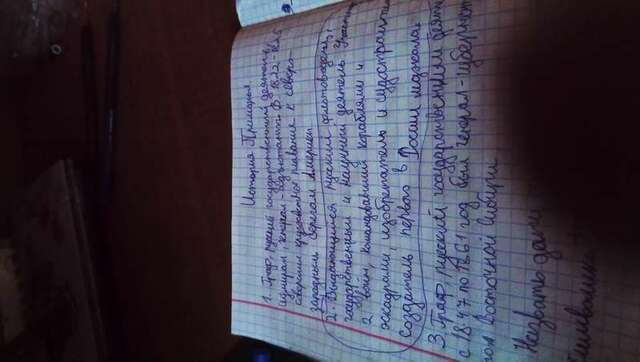 История Приморья.
1. Граф, русский государственный деятель,
адмирал, генерал-адъютант. В 1822-1825
совершил кругосветное плавание к северо-
западным берегам Америки
2. Выдающийся русский флотоводец,
государственный и научный деятель. Участник
2 войн, командовавший кораблями и
эскадрами, изобретатель и судостроитель
создатель первого в России
3. Граф, русский государственный деяте
с 1847 по 1861 год был генерал-губернат
Восточной Сибири
Назвать